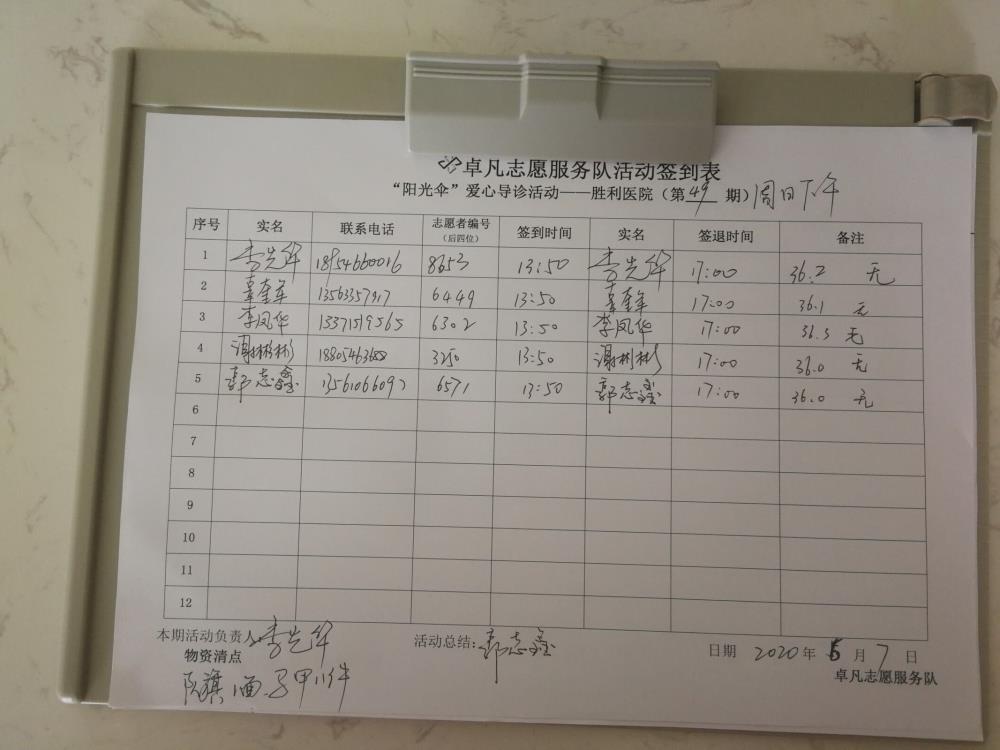 卓凡志愿服务队活动签到表
“阳光伞”爱心导诊活动——胜利医院（第49期）周日下午
序号 实名 联系电话 志愿者编号（后四位） 签到时间 实名 签退时间 备注
1 李先华 18954660016 8653 13:50 李先华 17:00 36.2 无
2 袁奎军 13563357917 6449 13:50 袁奎军 17:00 36.1 无
3 李凤华 13371519565 6302 13:50 李凤华 17:00 36.5 无
4 谢彬彬 13:50 谢彬彬 17:00 36.0 无
5 郭志鑫 13561066097 6571 13:50 郭志鑫 17:00 36.0 无
6
7
8
9
10
11
12
本期活动负责人：李先华 活动总结：郭志鑫 日期 2020年 月7日
物资清点 卓凡志愿服务队
队旗1面